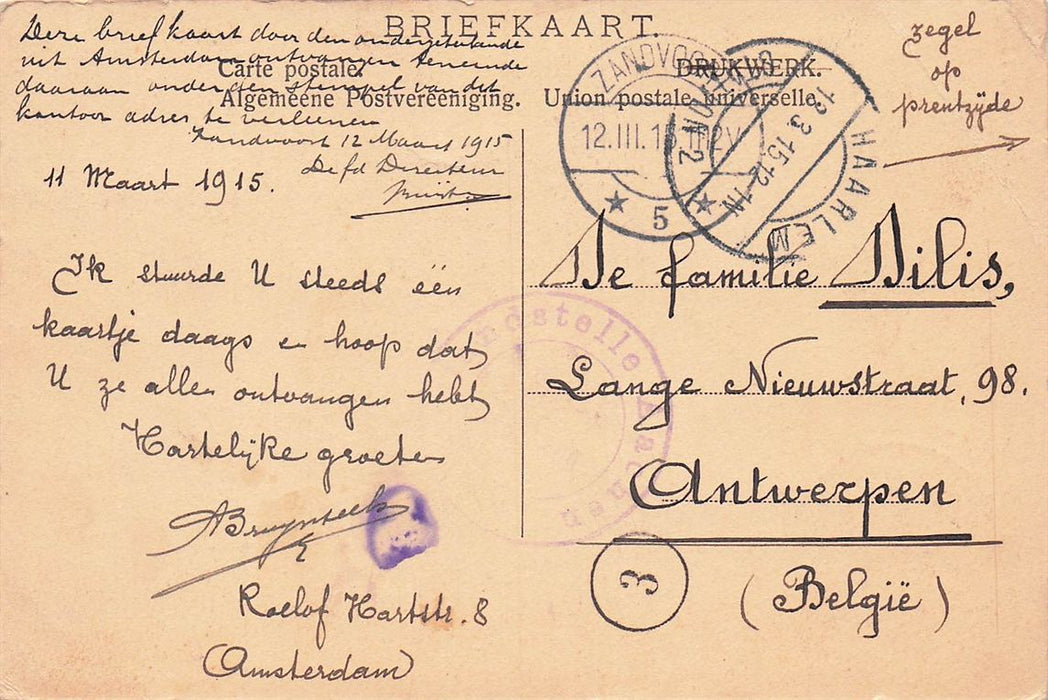 BRIEFKAART.
Deze briefkaart door den ondergeteekende
uit Amsterdam ontvangen teneinde
daaraan onder den stempel van dit
kantoor adres te verleenen
Zandvoort 12 Maart 1915
De fd Directeur
Carte postale.
DRUKWERK.
Algemeene Postvereeniging.
Union postale universelle.
zegel
op
prentzijde
ZANDVOORT
12.III.15
5
HAARLEM
12 3.15.12-1N
11 Maart 1915.
Ik stuurde U steeds één
kaartje daags en hoop dat
U ze allen ontvangen hebt
Hartelijke groeten
ABruynseels
Roelof Hartstr. 8
(Amsterdam)
De familie Dilis,
Lange Nieuwstraat, 98.
Antwerpen
(België)
3